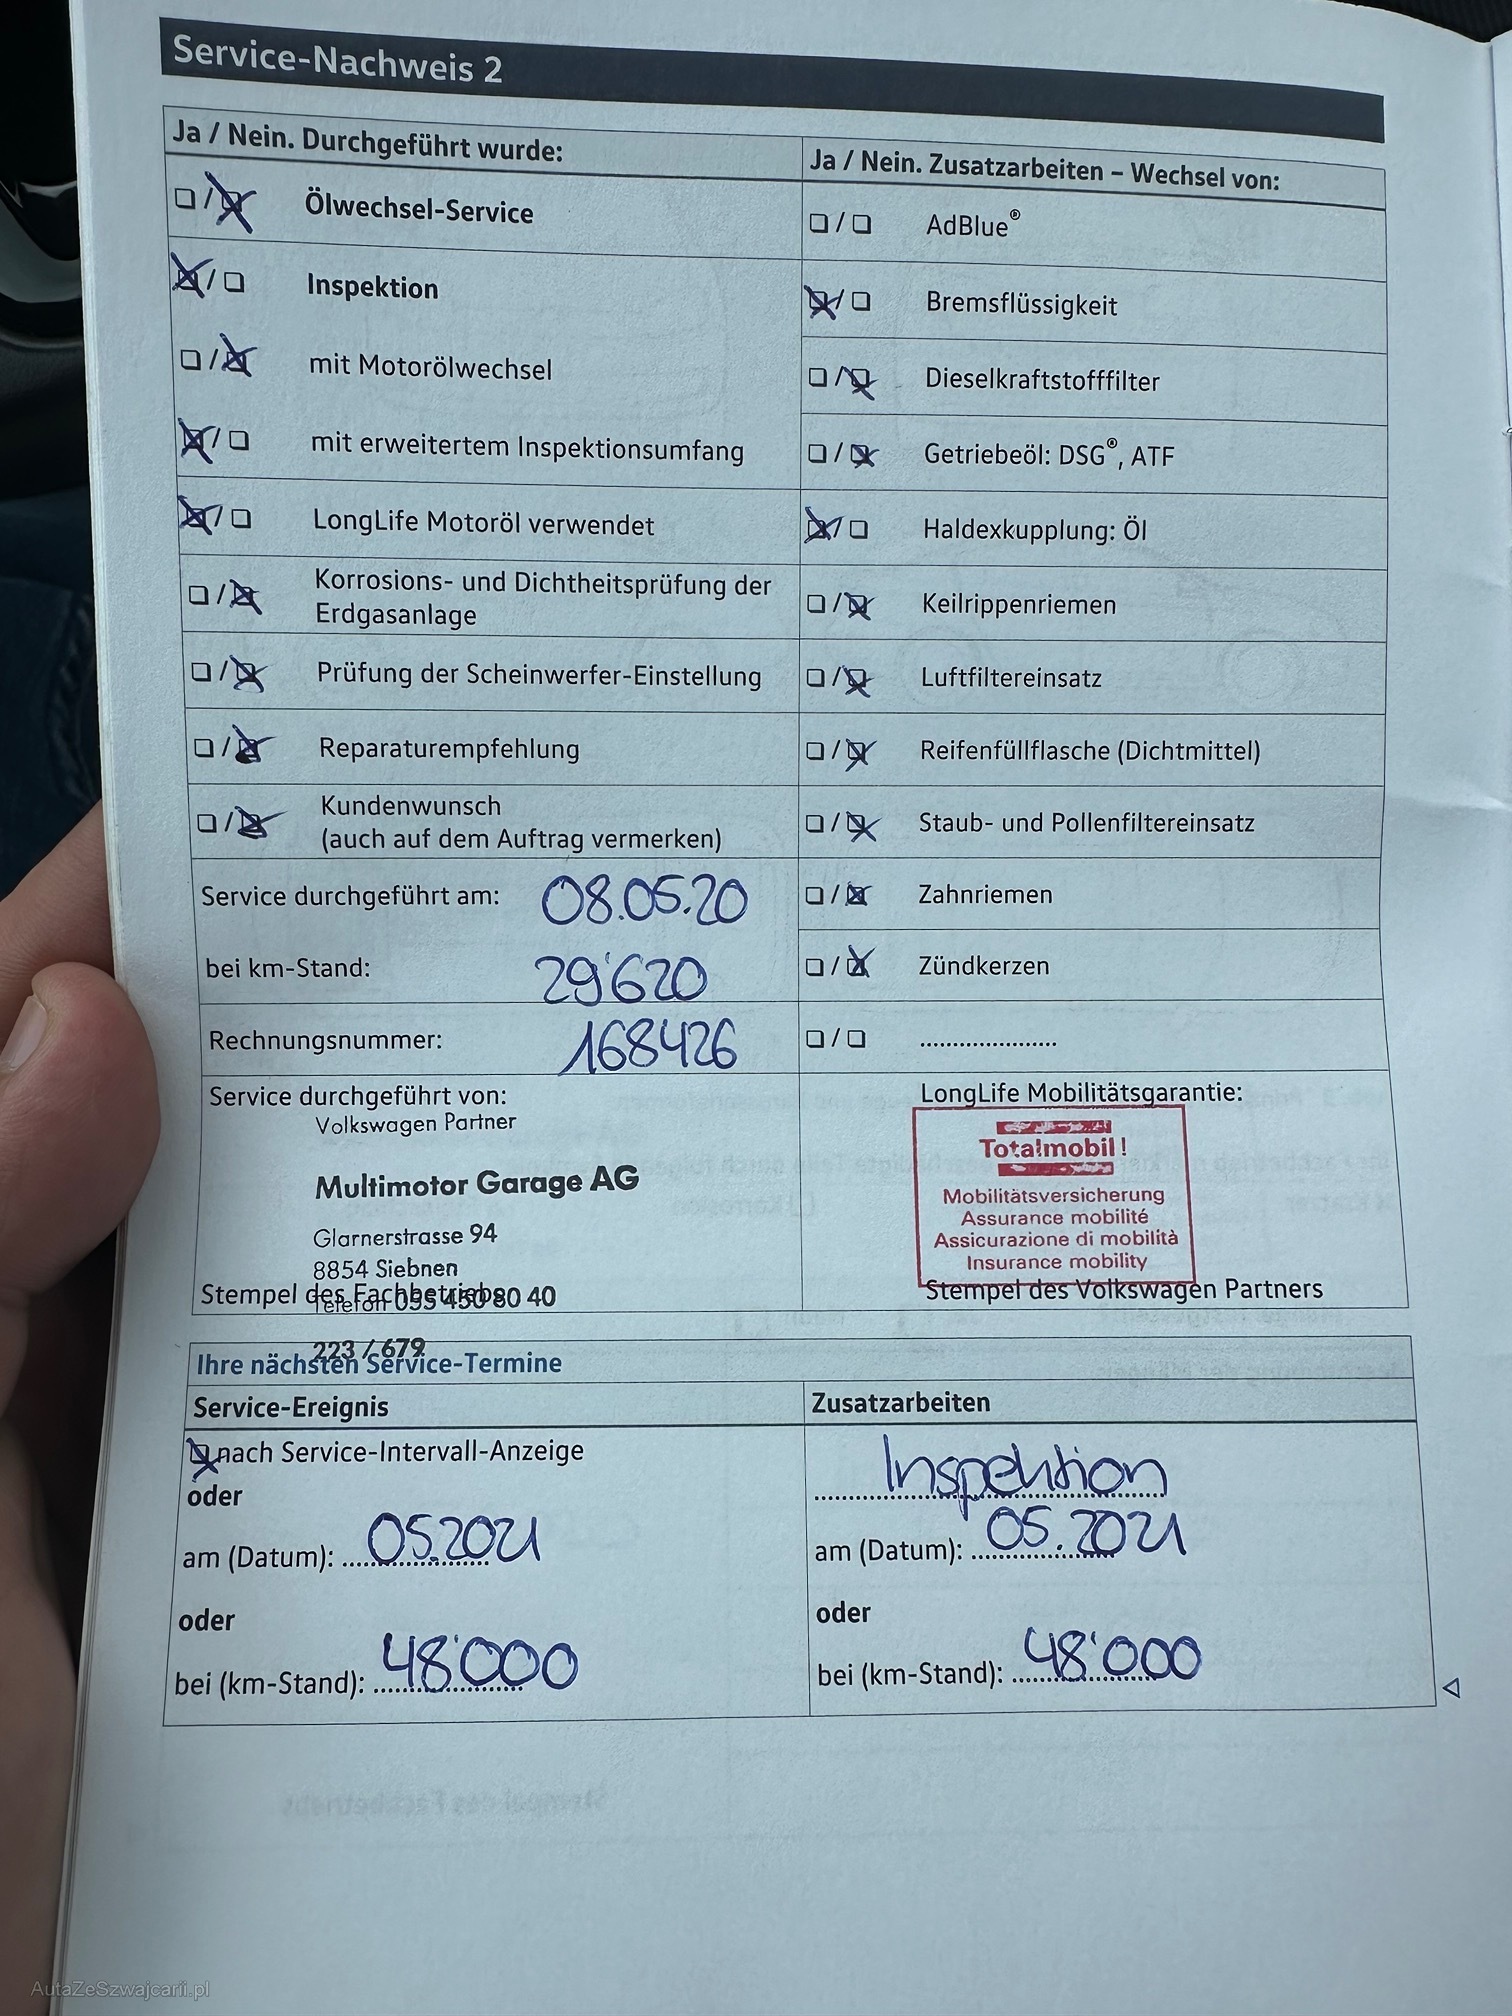 Service-Nachweis 2
Ja / Nein. Durchgeführt wurde:
Ölwechsel-Service
Inspektion
mit Motorölwechsel
mit erweitertem Inspektionsumfang
LongLife Motoröl verwendet
Korrosions- und Dichtheitsprüfung der
Erdgasanlage
Prüfung der Scheinwerfer-Einstellung
Reparaturempfehlung
Kundenwunsch
(auch auf dem Auftrag vermerken)
Service durchgeführt am: 08.05.20
bei km-Stand: 29'620
Rechnungsnummer: 168426
Ja / Nein. Zusatzarbeiten – Wechsel von:
AdBlue®
Bremsflüssigkeit
Dieselkraftstofffilter
Getriebeöl: DSG®, ATF
Haldexkupplung: Öl
Keilrippenriemen
Luftfiltereinsatz
Reifenfüllflasche (Dichtmittel)
Staub- und Pollenfiltereinsatz
Zahnriemen
Zündkerzen
.....................
Service durchgeführt von:
Volkswagen Partner
Multimotor Garage AG
Glarnerstrasse 94
8854 Siebnen
Stempel des Fachbetriebs
Telefon 055 450 80 40
223 / 679
LongLife Mobilitätsgarantie:
Totalmobil!
Mobilitätsversicherung
Assurance mobilité
Assicurazione di mobilità
Insurance mobility
Stempel des Volkswagen Partners
Ihre nächsten Service-Termine
Service-Ereignis
nach Service-Intervall-Anzeige
oder
am (Datum): 05.2021
oder
bei (km-Stand): 48'000
Zusatzarbeiten
Inspektion
am (Datum): 05.2021
oder
bei (km-Stand): 48'000
AutaZeSzwajcarii.pl